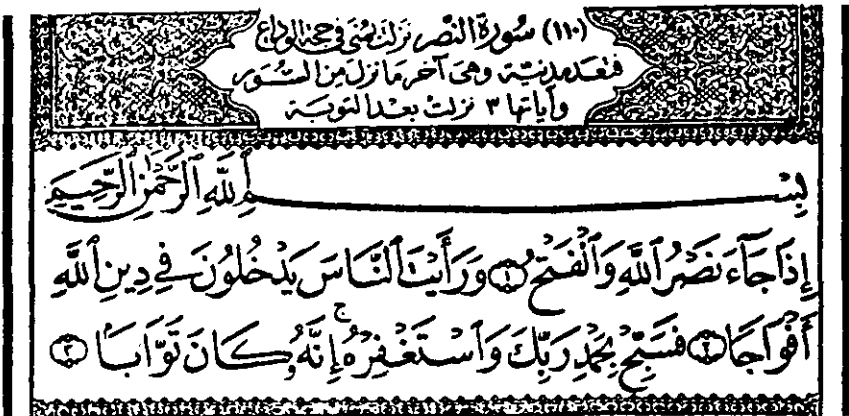 (١١٠) سُورَةُ النَّصْرِ نَزَلَتْ بِمِنًى فِي حَجَّةِ الْوَدَاعِ
فَتُعَدُّ مَدَنِيَّة وَهِيَ آخِرُ مَا نَزَلَ مِنَ السُّوَرِ
وَآيَاتُهَا ٣ نَزَلَتْ بَعْدَ التَّوْبَة
بِسْمِ ٱللَّهِ ٱلرَّحْمَٰنِ ٱلرَّحِيمِ
إِذَا جَآءَ نَصْرُ ٱللَّهِ وَٱلْفَتْحُ ١ وَرَأَيْتَ ٱلنَّاسَ يَدْخُلُونَ فِى دِينِ ٱللَّهِ
أَفْوَاجًا ٢ فَسَبِّحْ بِحَمْدِ رَبِّكَ وَٱسْتَغْفِرْهُ ۚ إِنَّهُۥ كَانَ تَوَّابًۢا ٣